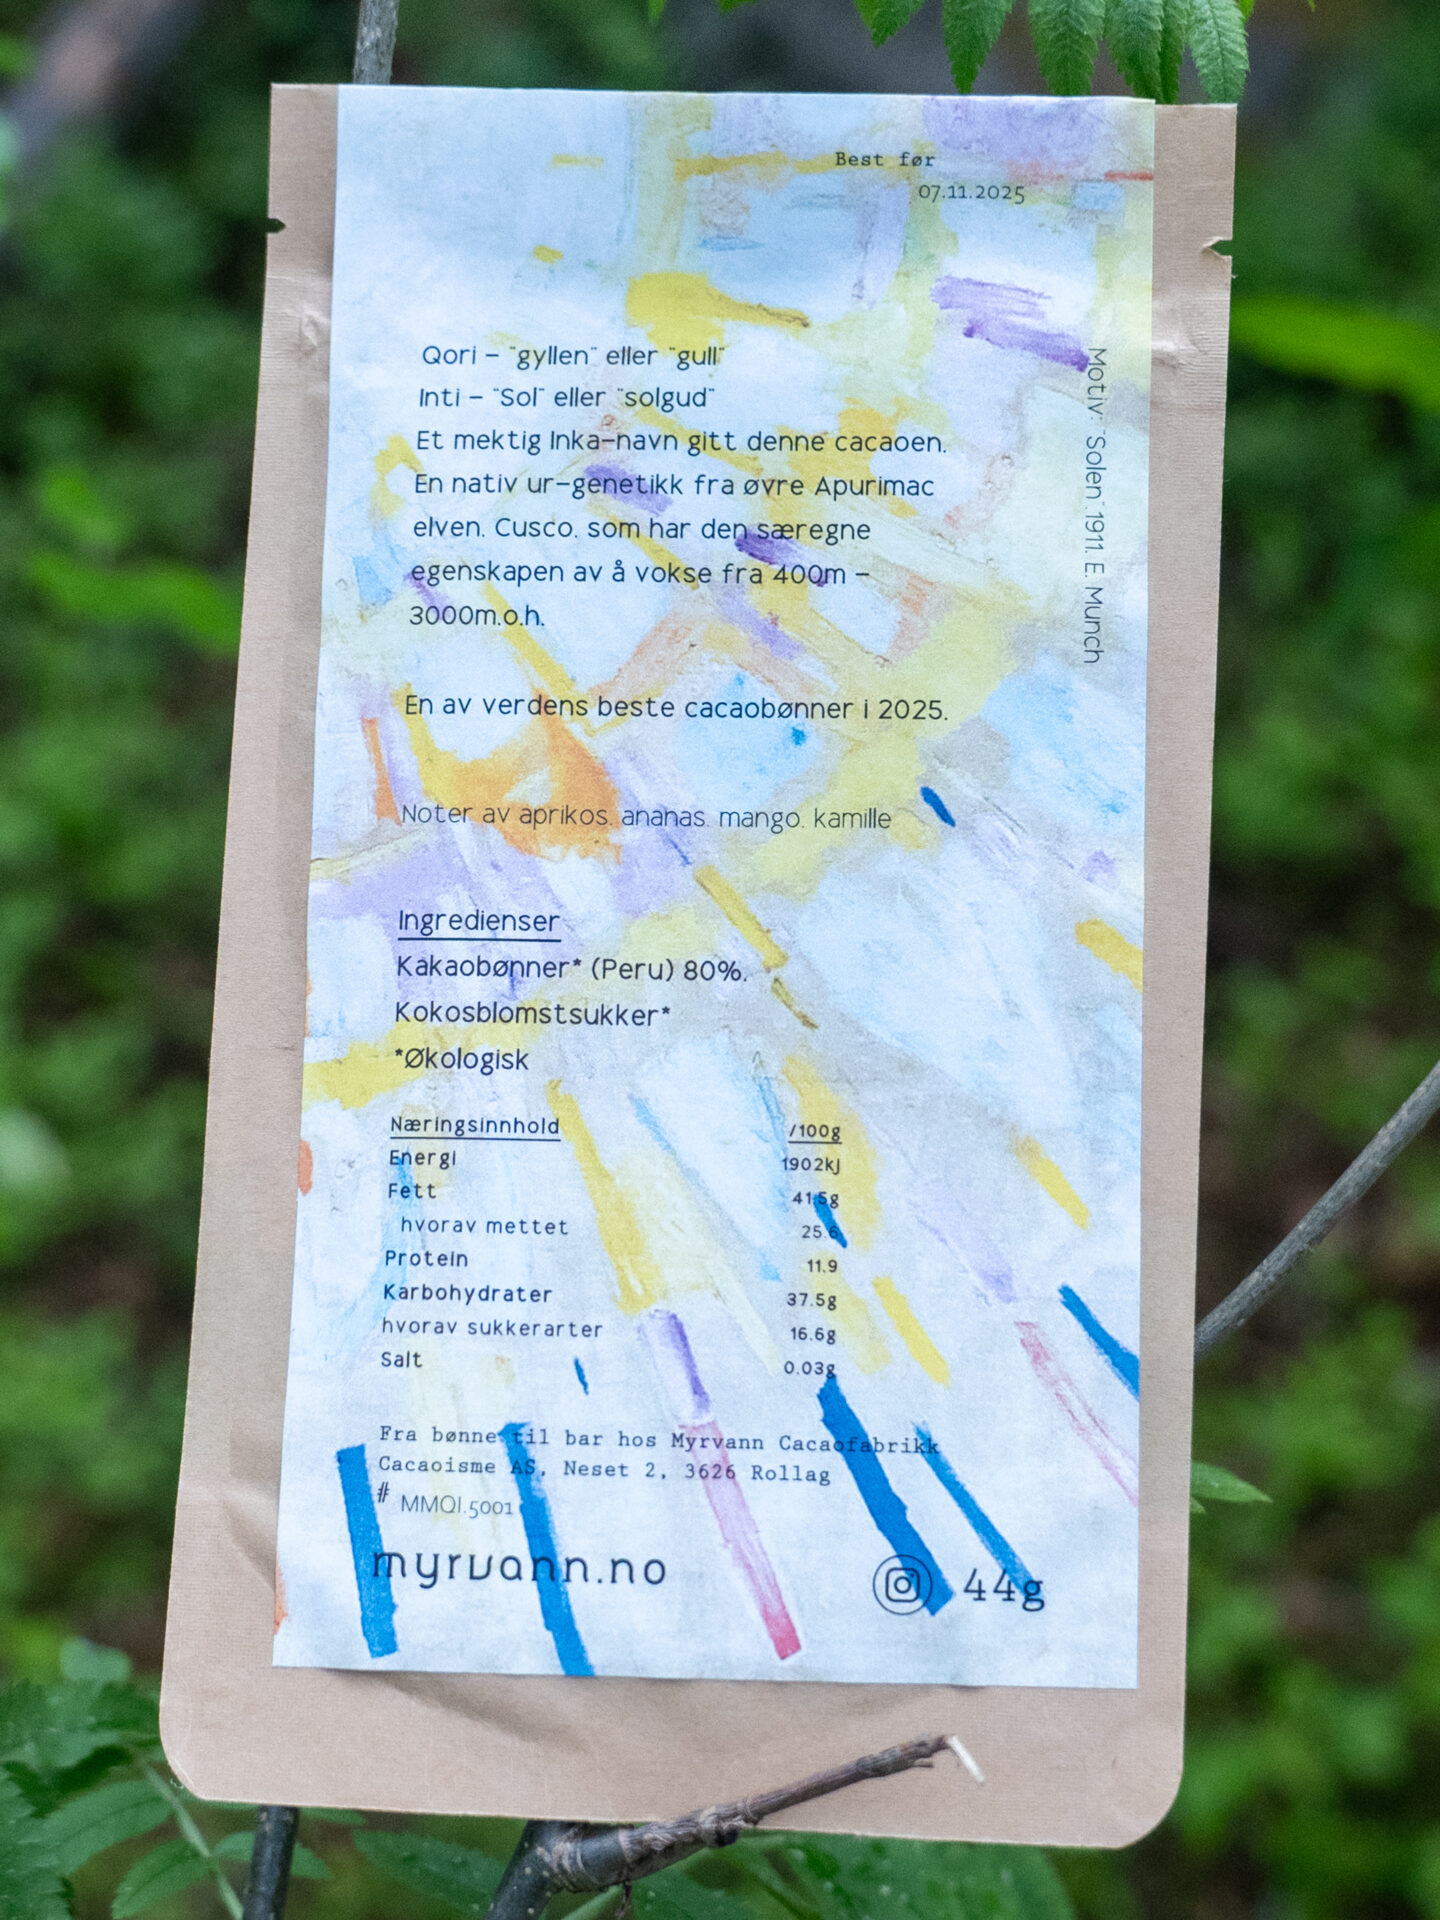 Best før
07.11.2025
Qori – "gyllen" eller "gull"
Inti – "Sol" eller "solgud"
Et mektig Inka-navn gitt denne cacaoen.
En nativ ur-genetikk fra øvre Apurimac
elven. Cusco. som har den særegne
egenskapen av å vokse fra 400m –
3000m.o.h.
Motiv: "Solen" 1911. E. Munch
En av verdens beste cacaobønner i 2025.
Noter av aprikos. ananas. mango. kamille
Ingredienser
Kakaobønner* (Peru) 80%.
Kokosblomstsukker*
*Økologisk
Næringsinnhold /100g
Energi 1902kj
Fett 41.5g
hvorav mettet 25.6
Protein 11.9
Karbohydrater 37.5g
hvorav sukkerarter 16.6g
Salt 0.03g
Fra bønne til bar hos Myrvann Cacaofabrikk
Cacaoisme AS, Neset 2, 3626 Rollag
# MMQI.5001
myrvann.no 44g